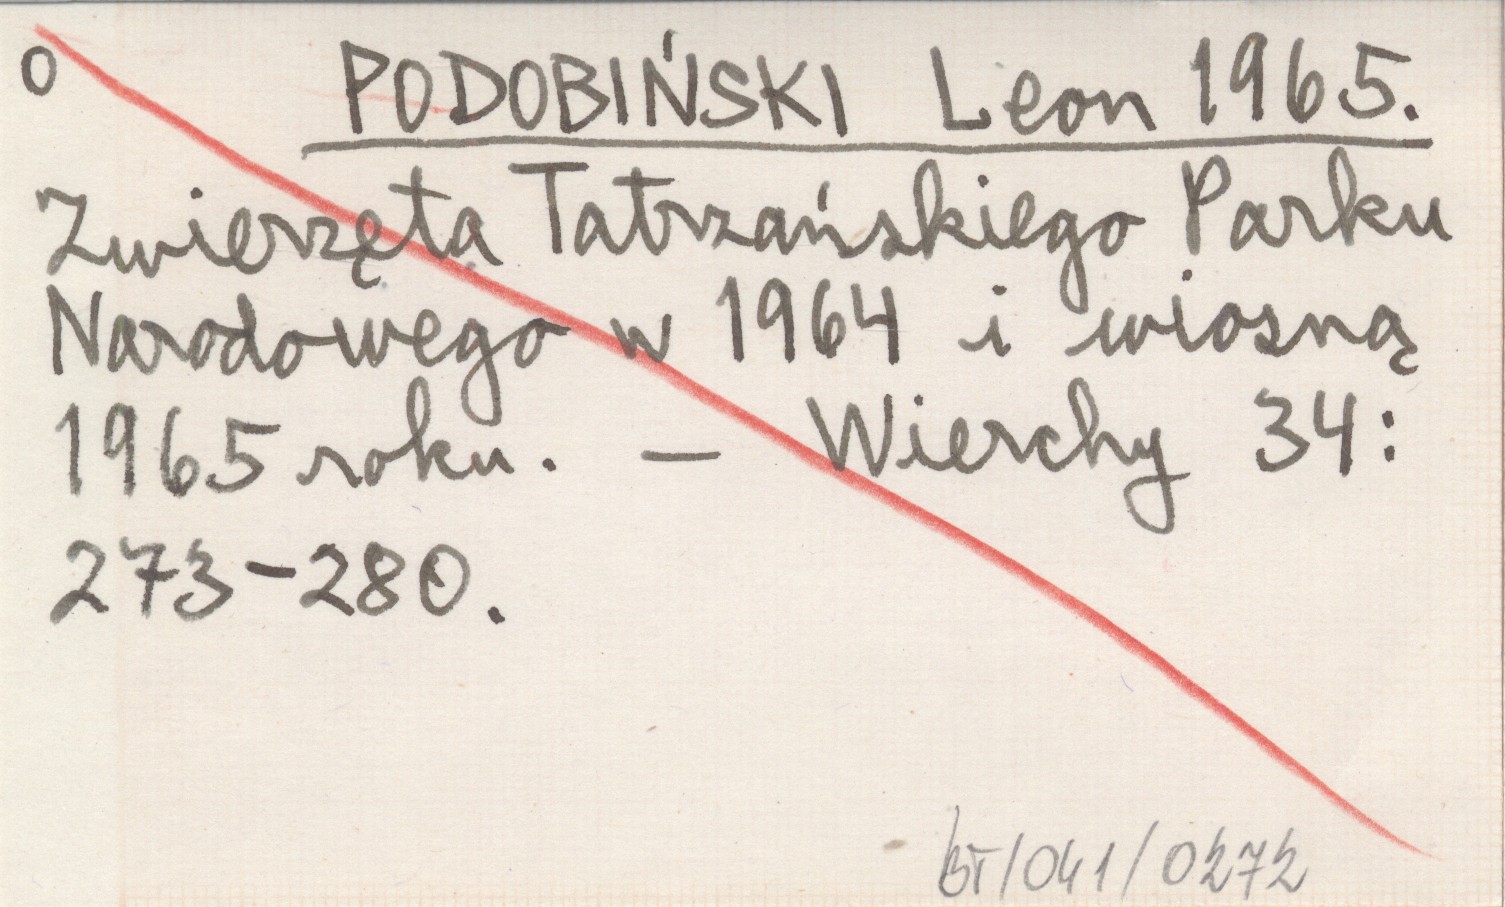 o PODOBIŃSKI Leon 1965.
Zwierzęta Tatrzańskiego Parku
Narodowego w 1964 i wiosną
1965 roku. — Wierchy 34:
273-280.
BT/041/0272